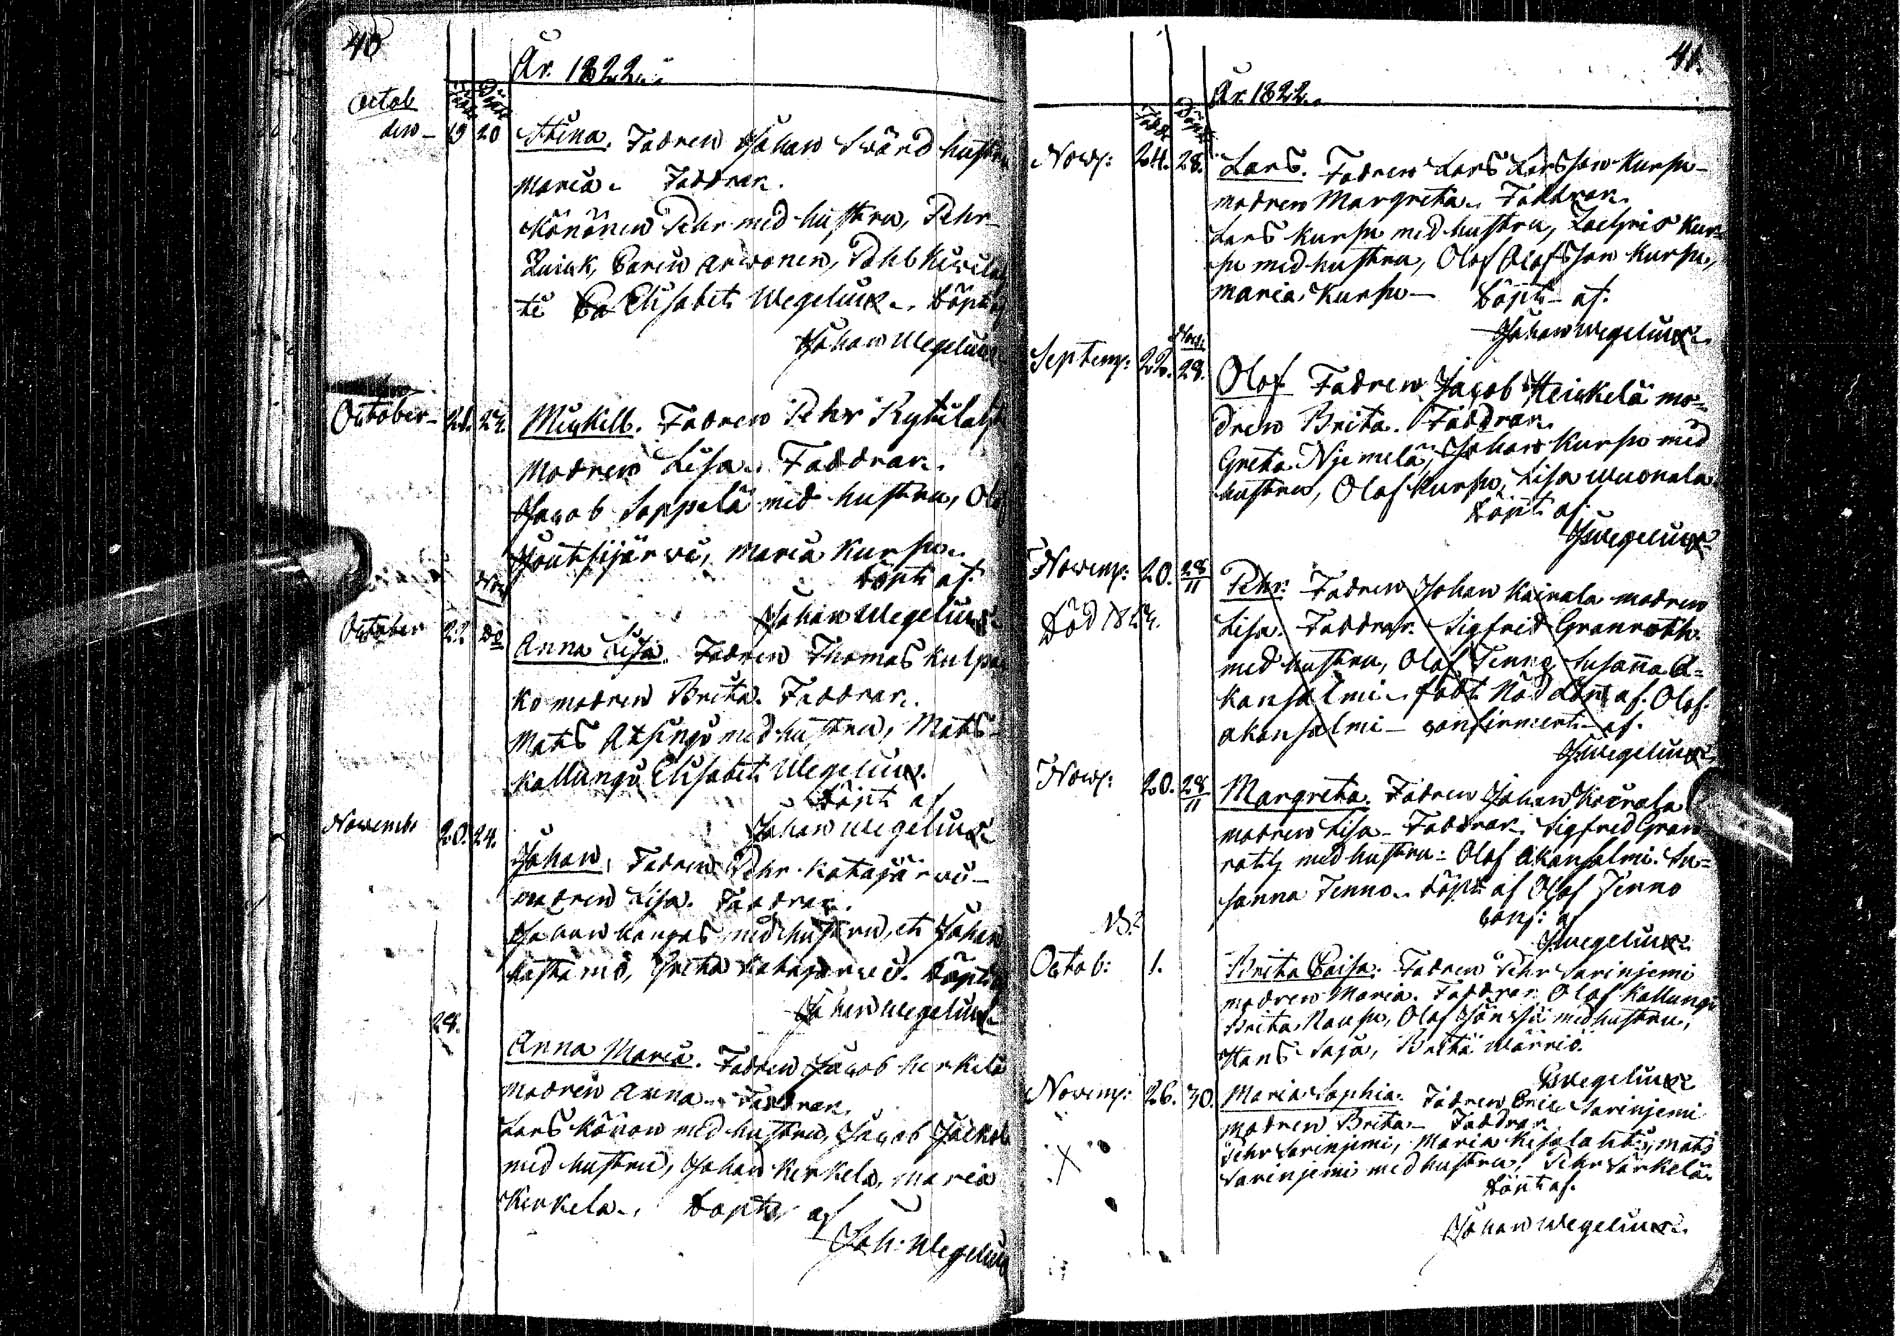 40
År. 1822.
Octob
Född Döpt
den 19 20 Stina. Fadren Johan Svärd hustru
Maria. Faddrar.
Könönen Pehr med hustru, Pehr
Quick, Carin Arwonen,
Elisabet Wegelius. Döpt af
Johan Wegelius
October 21. 27. Mickell. Fadren Pehr
Modren Lisa. Faddrar.
Jacob Soppela med hustru, Olof
Joutsijärwi, Maria Kursu.
Döpt af
Johan Wegelius
Nov
October 22 do Anna Lisa. Fadren Thomas Kulpa
ko modren Brita. Faddrar.
Mats Axsingo med hustru, Mats
Kallungi Elisabet Wegelius.
Döpt af
Johan Wegelius
Novemb 20. 24.
Johan, Fadren Pehr Katajärwi
modren Lisa. Faddrar.
Johan Kangas med hustru, et Johan
Greta Katajärwi. Döpt af
Johan Wegelius
24.
Anna Maria. Fadren Jacob Kerkelä
modren Anna. Faddrar.
Lars Könön med hustru, Jacob
med hustru, Johan Kerkela, Maria
Kerkela. Döpt af
Joh. Wegelius
41.
År 1822.
Född Döpt
Novr: 24. 28. Lars. Fadren Lars Larsson Kursu
modren Margreta. Faddrar.
Lars Kursu med hustru, Zachris Kur-
su med hustru, Olof Olofsson Kursu,
Maria Kursu Döpt af.
Johan Wegelius.
Nov:
Septemr: 22. 28. Olof Fadren Jacob Heickelä mo-
dren Brita. Faddrar.
Greta Njemelä, Johan Kursu med
hustru, Olof Kursu, Lisa Wuonala
Döpt af
JWegelius
Novemr: 20. 28/11 Pehr. Fadren Johan Kairala modren
Död 1824.
Lisa. Faddrar. Sigfred Granroth
med hustru, Olof Tenno, Susanna A-
kansalmi. födt Nöd döpt af. Olof.
Akansalmi confirmert af.
JWegelius
Novr: 20. 28/11 Margreta. Fadren Johan Kairala
modren Lisa. Faddrar. Sigfred Gran
roth med hustru: Olof Akansalmi. Su-
sanna Tenno. döpt af Olof Tenno
Conf: af
JWegelius
Octob: 1. Brita Caisa. Fadren Pehr Sarinjemi
modren Maria. Faddrar. Olof Kallungi
Brita Olof med hustru,
Hans Saja, Brita Wärriö.
JWegelius
Novemr: 26. 30. Maria Sophia. Fadren Eric Sarinjemi
modren Brita. Faddrar.
Pehr Sarinjemi, Maria Kesälahti, Mats
Sarinjemi med hustru, Pehr Särkelä
X
Döpt af.
Johan Wegelius.